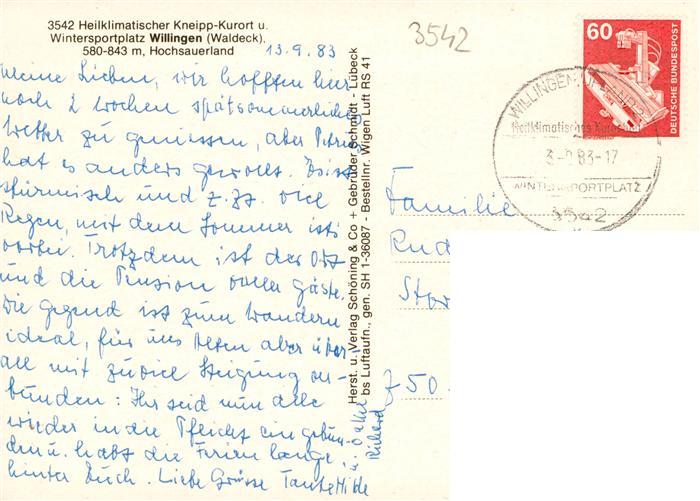 3542 Heilklimatischer Kneipp-Kurort u.
Wintersportplatz Willingen (Waldeck),
580-843 m, Hochsauerland
13.9.83
Meine Lieben, wir hofften hier
noch 2 wochen spätsommerliches
Wetter zu geniessen, aber Petrus
hat es anders gewollt. Es ist
stürmisch und z. Zt. viel
Regen, mit dem Sommer ists
vorbei. Trotzdem ist der Ort
und die Pension voller Gäste.
Die Gegend ist zum Wandern
ideal, für uns Alten aber über-
all mit zuviel Steigung ver-
bunden: Ihr seid nun alle
wieder in die Pflicht eingebun-
den u. habt die Ferien lange
hinter Euch. Liebe Grüsse Tante Hilde
u. Onkel
Richard
Herst. u. Verlag Schöning & Co + Gebrüder Schmidt - Lübeck
bs Luftaufn., gen. SH 1-36087 - Bestellnr. Wigem Luft RS 41
3542
60
DEUTSCHE BUNDESPOST
WILLINGEN
Heilklimatisches
83-17
WINTERSPORTPLATZ
3542
Familie
Rud
Z 50